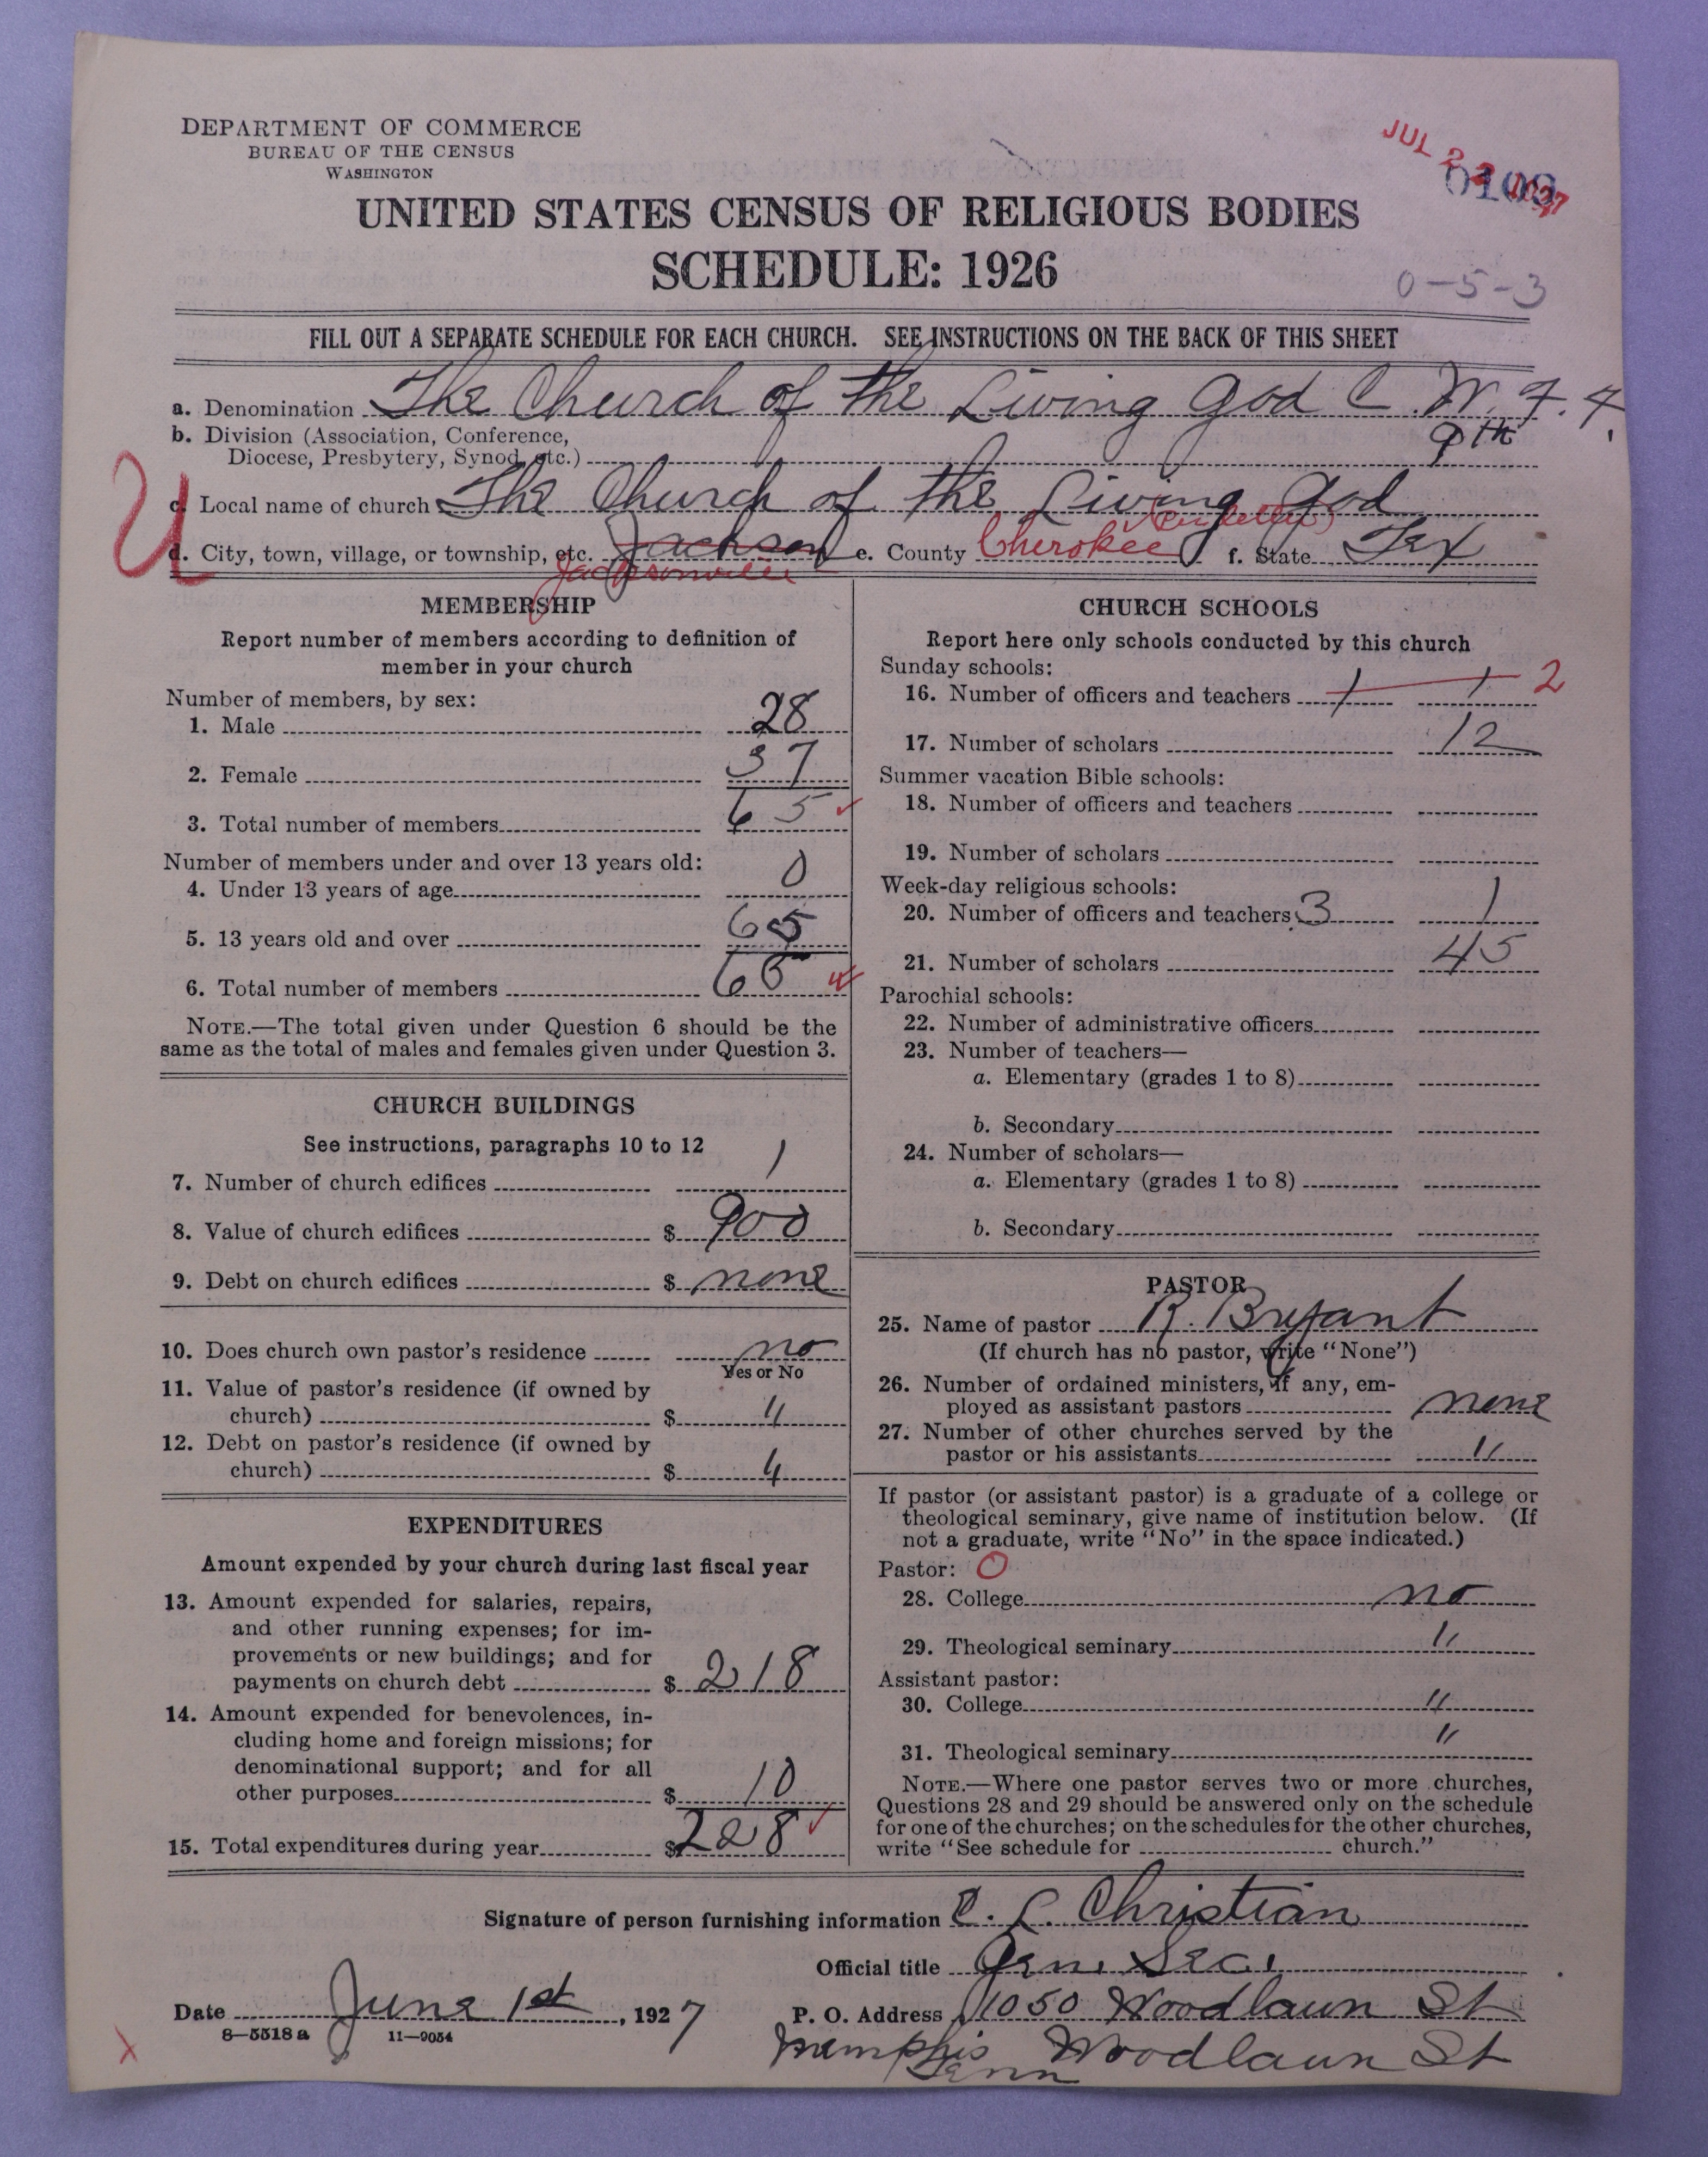 DEPARTMENT OF COMMERCE
BUREAU OF THE CENSUS
WASHINGTON
JUL 2 1927
UNITED STATES CENSUS OF RELIGIOUS BODIES
SCHEDULE: 1926
0-5-3
FILL OUT A SEPARATE SCHEDULE FOR EACH CHURCH. SEE INSTRUCTIONS ON THE BACK OF THIS SHEET
a. Denomination The Church of the Living God C. W. F. F.
b. Division (Association, Conference,
Diocese, Presbytery, Synod, etc.) 9th
U
c. Local name of church The Church of the Living God
d. City, town, village, or township, etc. Jackson e. County Cherokee f. State Tex
Jacksonville
MEMBERSHIP
Report number of members according to definition of
member in your church
Number of members, by sex:
1. Male 28
2. Female 37
3. Total number of members 65
Number of members under and over 13 years old:
4. Under 13 years of age 0
5. 13 years old and over 65
6. Total number of members 65
NOTE.—The total given under Question 6 should be the
same as the total of males and females given under Question 3.
CHURCH BUILDINGS
See instructions, paragraphs 10 to 12
7. Number of church edifices 1
8. Value of church edifices $ 900
9. Debt on church edifices $ none
10. Does church own pastor's residence no
Yes or No
11. Value of pastor's residence (if owned by
church) $ "
12. Debt on pastor's residence (if owned by
church) $ "
EXPENDITURES
Amount expended by your church during last fiscal year
13. Amount expended for salaries, repairs,
and other running expenses; for im-
provements or new buildings; and for
payments on church debt $ 218
14. Amount expended for benevolences, in-
cluding home and foreign missions; for
denominational support; and for all
other purposes $ 10
15. Total expenditures during year $ 228
CHURCH SCHOOLS
Report here only schools conducted by this church
Sunday schools:
16. Number of officers and teachers 1 1 2
17. Number of scholars 12
Summer vacation Bible schools:
18. Number of officers and teachers
19. Number of scholars
Week-day religious schools:
20. Number of officers and teachers 3 1
21. Number of scholars 45
Parochial schools:
22. Number of administrative officers
23. Number of teachers—
a. Elementary (grades 1 to 8)
b. Secondary
24. Number of scholars—
a. Elementary (grades 1 to 8)
b. Secondary
PASTOR
25. Name of pastor R. Bryant
(If church has no pastor, write "None")
26. Number of ordained ministers, if any, em-
ployed as assistant pastors none
27. Number of other churches served by the
pastor or his assistants "
If pastor (or assistant pastor) is a graduate of a college or
theological seminary, give name of institution below. (If
not a graduate, write "No" in the space indicated.)
Pastor: O
28. College no
29. Theological seminary "
Assistant pastor:
30. College "
31. Theological seminary "
NOTE.—Where one pastor serves two or more churches,
Questions 28 and 29 should be answered only on the schedule
for one of the churches; on the schedules for the other churches,
write "See schedule for church."
Signature of person furnishing information C. L. Christian
Official title Gen. Sec.
Date June 1st, 1927 P. O. Address 1050 Woodlawn St
8—5518 a 11—9054
Memphis Woodlawn St
Tenn
X